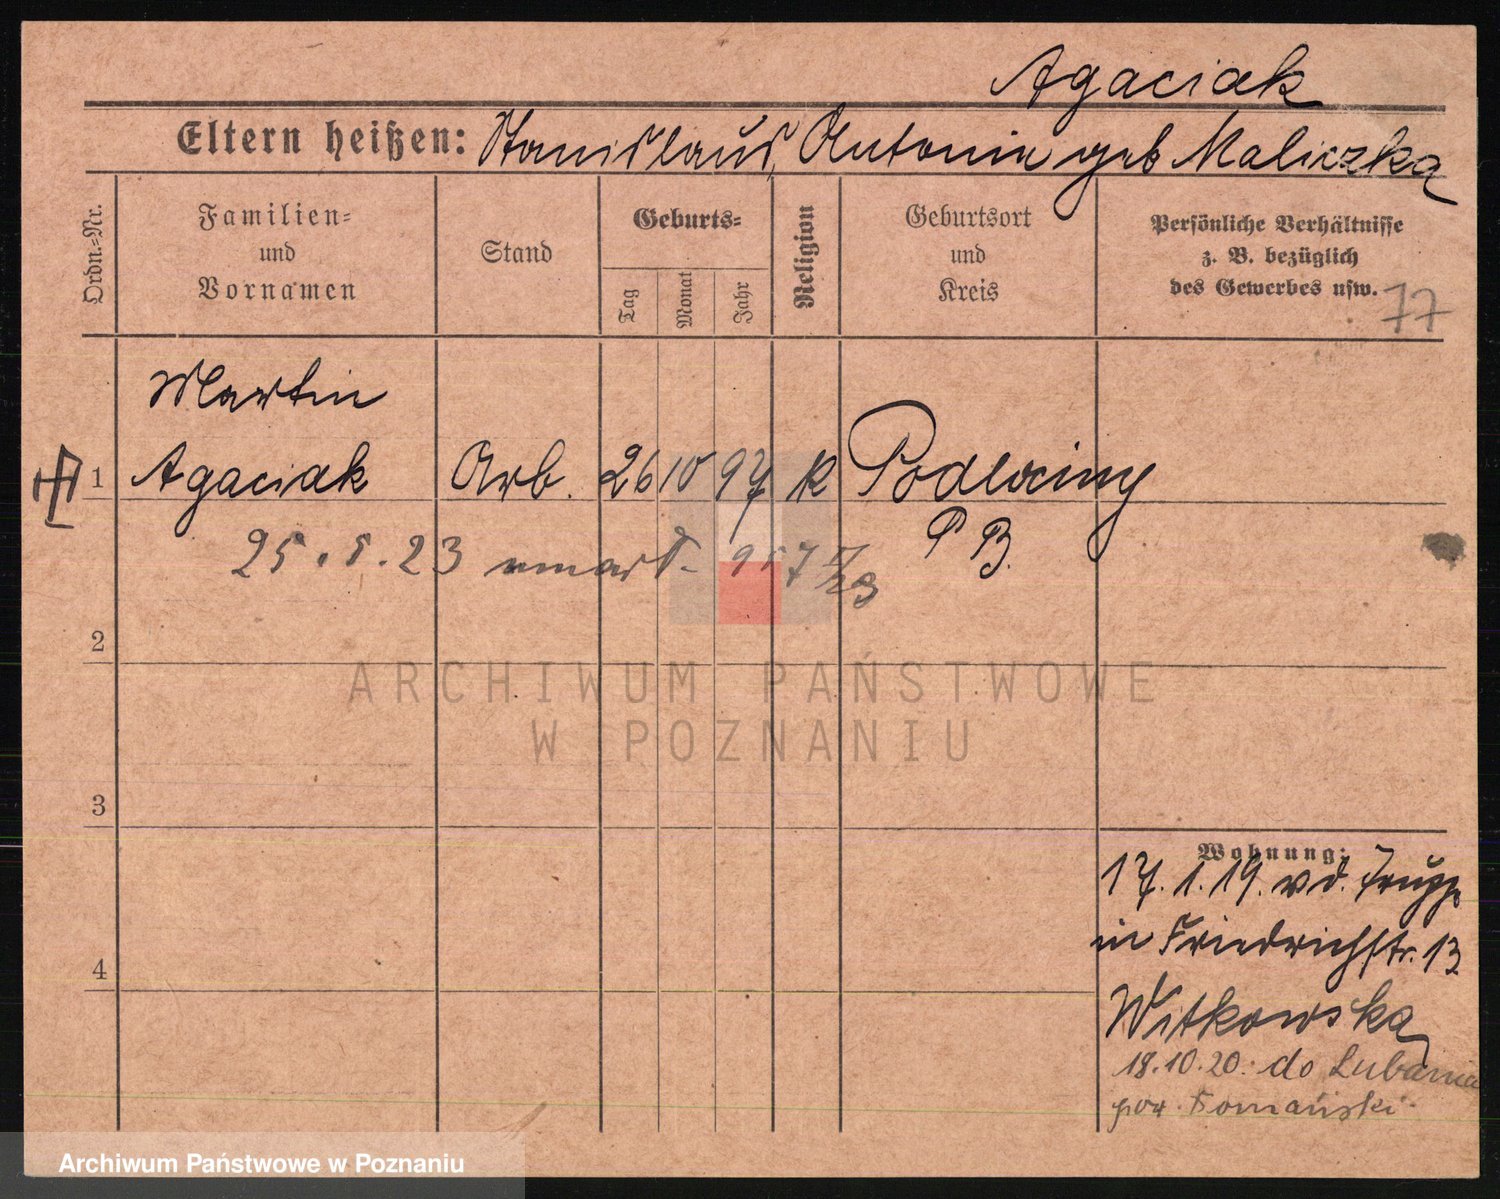 Agaciak
Eltern heißen: Stanislaus, Antonie geb Maliczka
Ordn.=Nr.
Familien=
und
Vornamen
Stand
Geburts=
Tag
Monat
Jahr
Religion
Geburtsort
und
Kreis
Persönliche Verhältnisse
z. B. bezüglich
des Gewerbes usw.
77
Martin
1 Agaciak Arb. 26 10 97 k Podlesiny
P B.
25. 5. 23 umarł
2
3
4
Wohnung:
17. 1. 19. v d. Truppe
in Friedrichstr. 13
Witkowska
18.10.20. do Lubania
pow.
ARCHIWUM PAŃSTWOWE
W POZNANIU
Archiwum Państwowe w Poznaniu